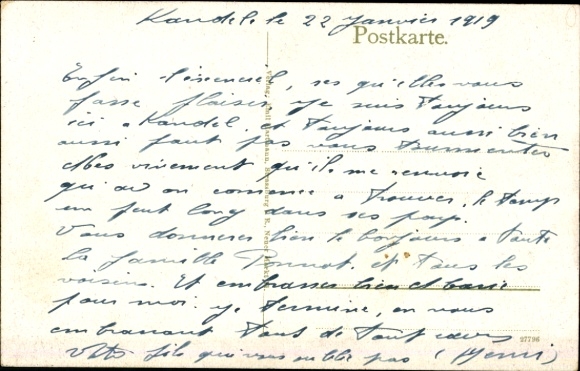 Kandel le 22 Janvier 1919
Postkarte.
Enfin l'éssenciel, ses qu'elles vous
fasse plaisir, je suis toujours
ici a Kandel, et toujours aussi bien
aussi faut pas vous tourmenter
vivement qu'il me renvoie
qu'on comence a trouver le temps
un peut long dans ses pays.
Vous donnerez bien le bonjours a toute
la famille et tous les
voisins. Et embrasser bien
pour moi. je termine, en vous
embrassant tout de tout cœurs
votre fils qui vous oublie pas (Henri)
27796